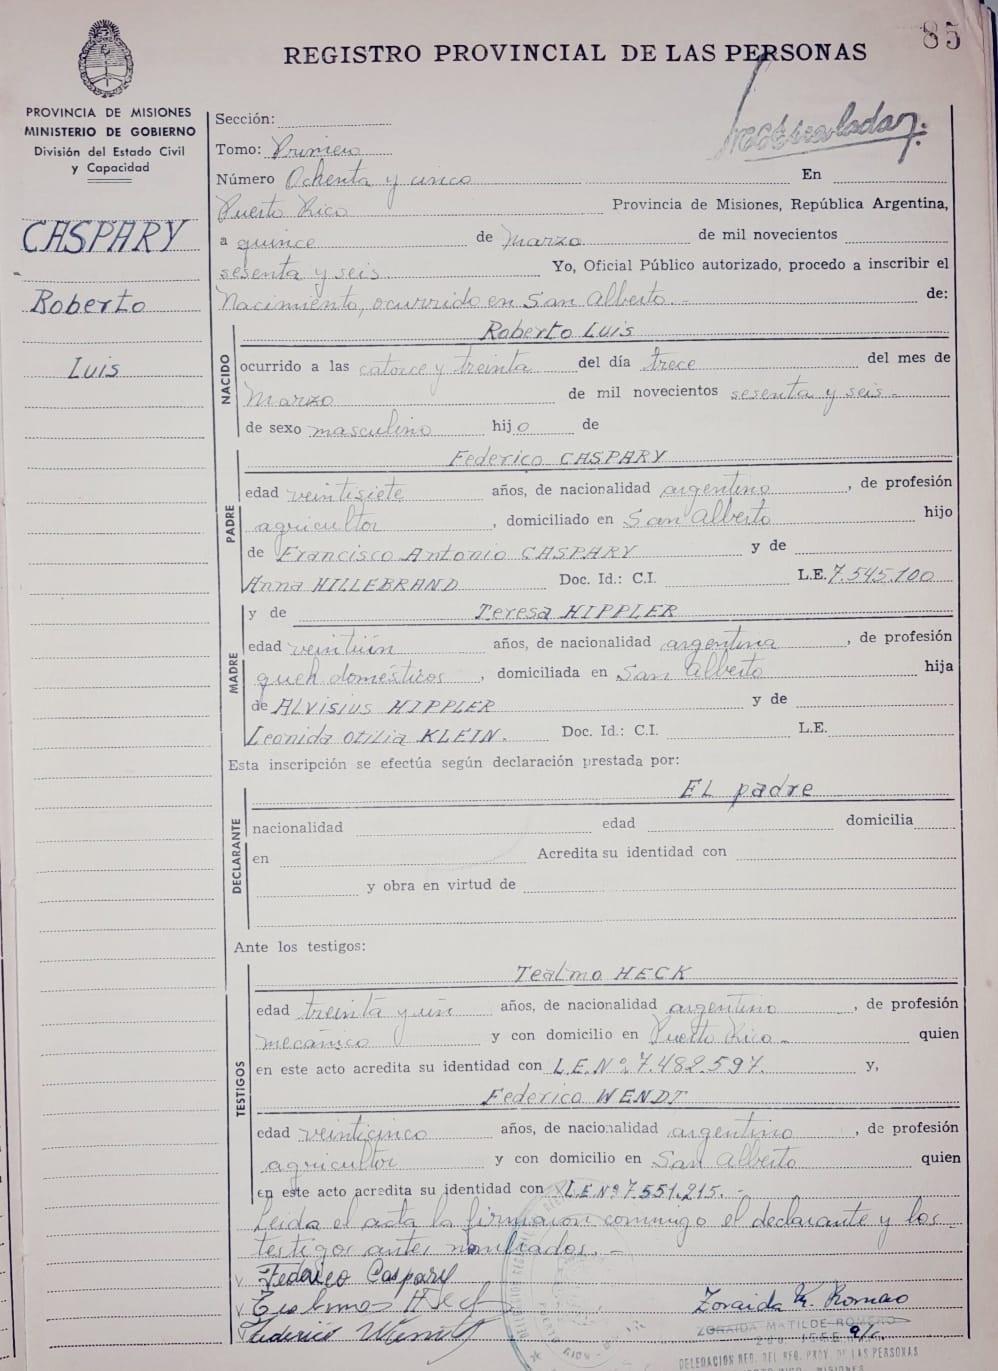 85
REGISTRO PROVINCIAL DE LAS PERSONAS
PROVINCIA DE MISIONES
MINISTERIO DE GOBIERNO
División del Estado Civil
y Capacidad
CASPARY
Roberto
Luis
Sección:
Tomo: Primero
Número Ochenta y cinco En
Puerto Rico Provincia de Misiones, República Argentina,
a quince de Marzo de mil novecientos
sesenta y seis Yo, Oficial Público autorizado, procedo a inscribir el
Nacimiento, ocurrido en San Alberto.- de:
NACIDO
Roberto Luis
ocurrido a las catorce y treinta del día trece del mes de
Marzo de mil novecientos sesenta y seis.-
de sexo masculino hijo de
PADRE
Federico CASPARY
edad veintisiete años, de nacionalidad argentino, de profesión
agricultor, domiciliado en San Alberto hijo
de Francisco Antonio CASPARY y de
Anna HILLEBRAND Doc. Id.: C.I. L.E. 7.545.100
MADRE
y de Teresa HIPPLER
edad veintiún años, de nacionalidad argentina, de profesión
queh domésticos, domiciliada en San Alberto hija
de ALVISIUS HIPPLER y de
Leonida Otilia KLEIN. Doc. Id.: C.I. L.E.
Esta inscripción se efectúa según declaración prestada por:
DECLARANTE
EL padre
nacionalidad edad domicilia
en Acredita su identidad con
y obra en virtud de
Ante los testigos:
TESTIGOS
Tealmo HECK
edad treinta y un años, de nacionalidad argentino, de profesión
mecánico y con domicilio en Puerto Rico.- quien
en este acto acredita su identidad con L.E.Nº.7.482.597. y,
Federico WENDT
edad veinticinco años, de nacionalidad argentino, de profesión
agricultor y con domicilio en San Alberto quien
en este acto acredita su identidad con L.E Nº 7.551.215.-
Leída el acta la firmaron conmigo el declarante y los
testigos antes nombrados.-
Federico Caspary
Zoraida M. Romero
ZORAIDA MATILDE ROMERO
DELEGACION REG. DEL REG. PROV. DE LAS PERSONAS